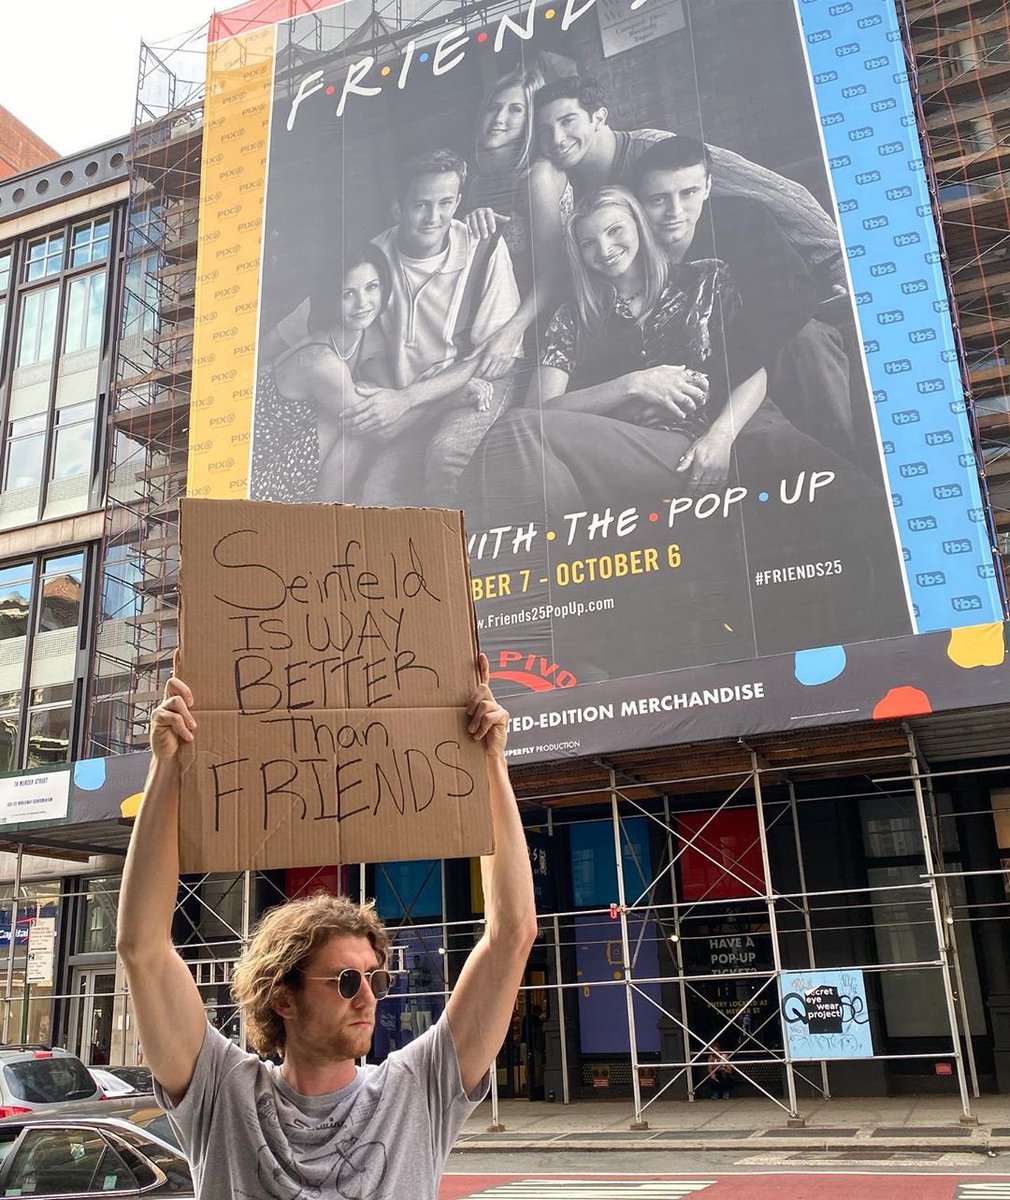 F•R•I•E•N•D•S
PIX11
tbs
Seinfeld
IS WAY
BETTER
Than
FRIENDS
WITH•THE•POP•UP
BER 7 - OCTOBER 6
w.Friends25PopUp.com
#FRIENDS25
PIVO
TED-EDITION MERCHANDISE
SUPERFLY PRODUCTION
HAVE A
POP-UP
TICKET?
ENTRY LOCATED AT
Secret
eye
wear
project